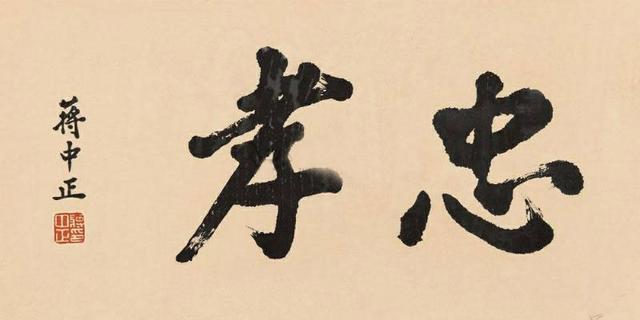 忠孝
蔣中正